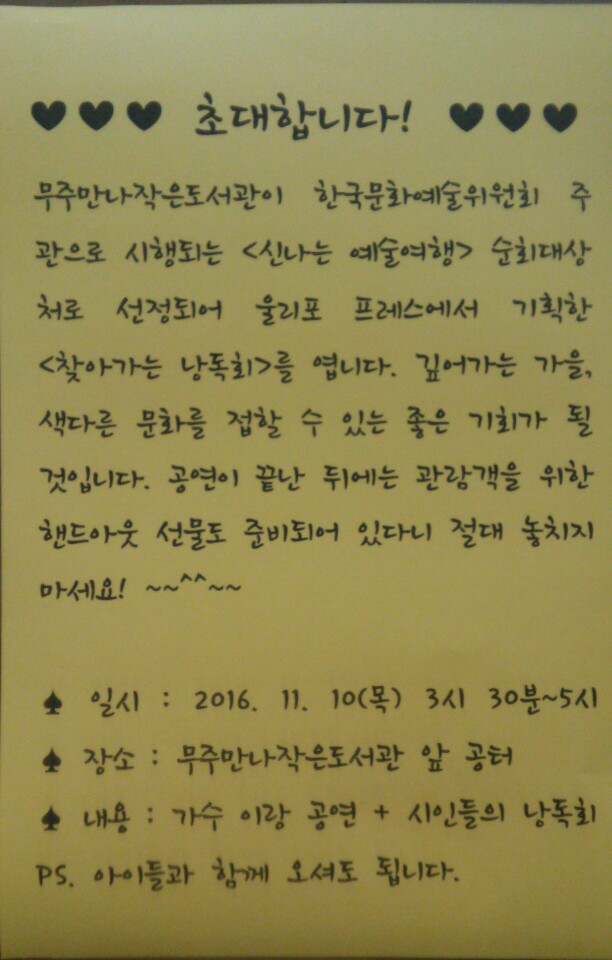 ♥ ♥ ♥ 초대합니다! ♥ ♥ ♥
무주만나작은도서관이 한국문화예술위원회 주
관으로 시행되는 <신나는 예술여행> 순회대상
처로 선정되어 울리포 프레스에서 기획한
<찾아가는 낭독회>를 엽니다. 깊어가는 가을,
색다른 문화를 접할 수 있는 좋은 기회가 될
것입니다. 공연이 끝난 뒤에는 관람객을 위한
핸드아웃 선물도 준비되어 있다니 절대 놓치지
마세요! ~~^^~~
♠ 일시 : 2016. 11. 10(목) 3시 30분~5시
♠ 장소 : 무주만나작은도서관 앞 공터
♠ 내용 : 가수 이랑 공연 + 시인들의 낭독회
PS. 아이들과 함께 오셔도 됩니다.